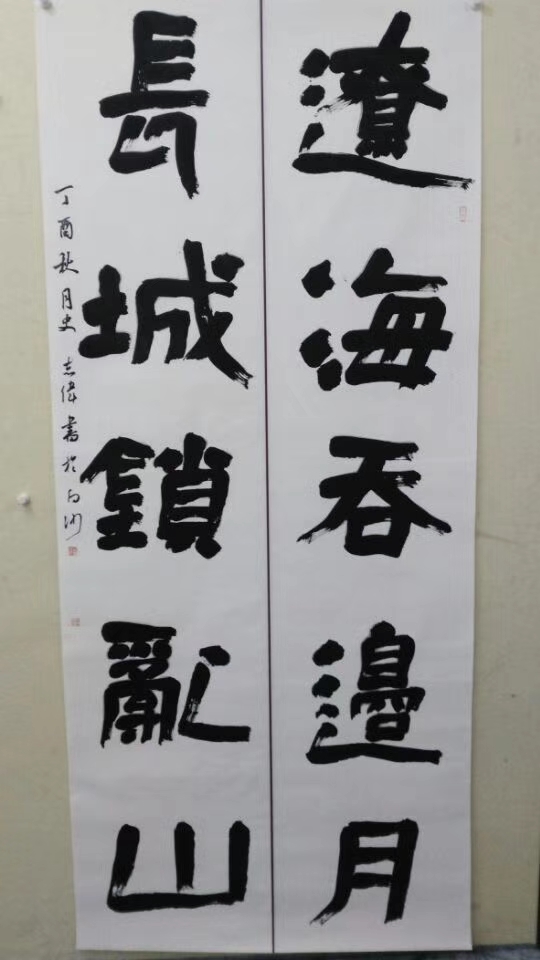 遼海吞邊月
長城鎖亂山
丁酉秋月史志偉書於白沙